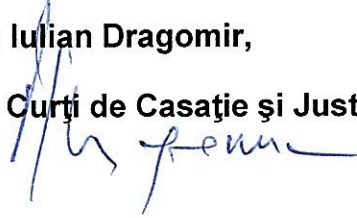 Iulian Dragomir,
Curţi de Casaţie şi Just